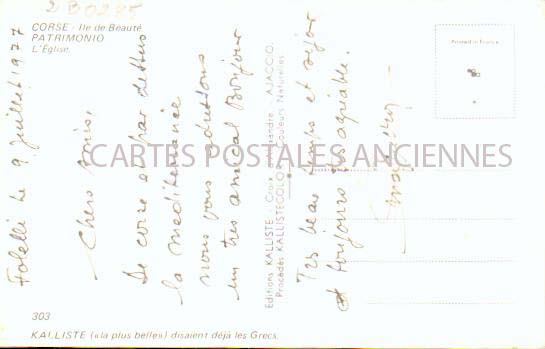 2B0285
CORSE - Ile de Beauté
PATRIMONIO
L'Église.
Folelli le 9 Juillet 1977
Chers amis,
De corse et par dessus
la mediterranée
nous vous adressons
un tres amical Bonjour
Editions KALLISTE - Croix d'Alexandre - AJACCIO
Procédés KALLISTECOLOR - Couleurs Naturelles
Tres beau temps et séjour
toujours tres agréable.
Printed in France
CARTES POSTALES ANCIENNES
303
KALLISTE («la plus belle») disaient déjà les Grecs.